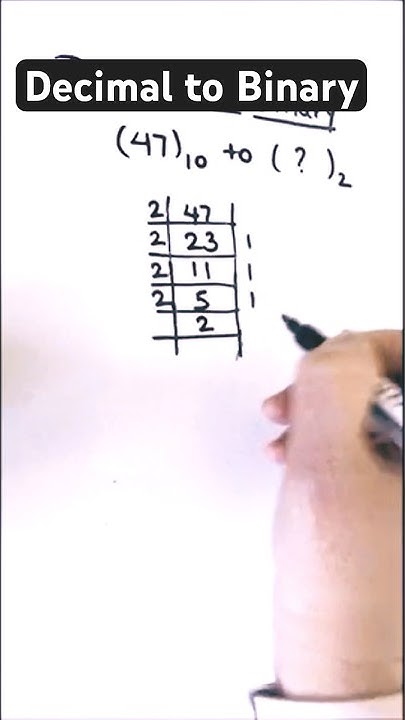 Decimal to Binary
(47)10 to ( ? )2
2 47
2 23 1
2 11 1
2 5 1
2